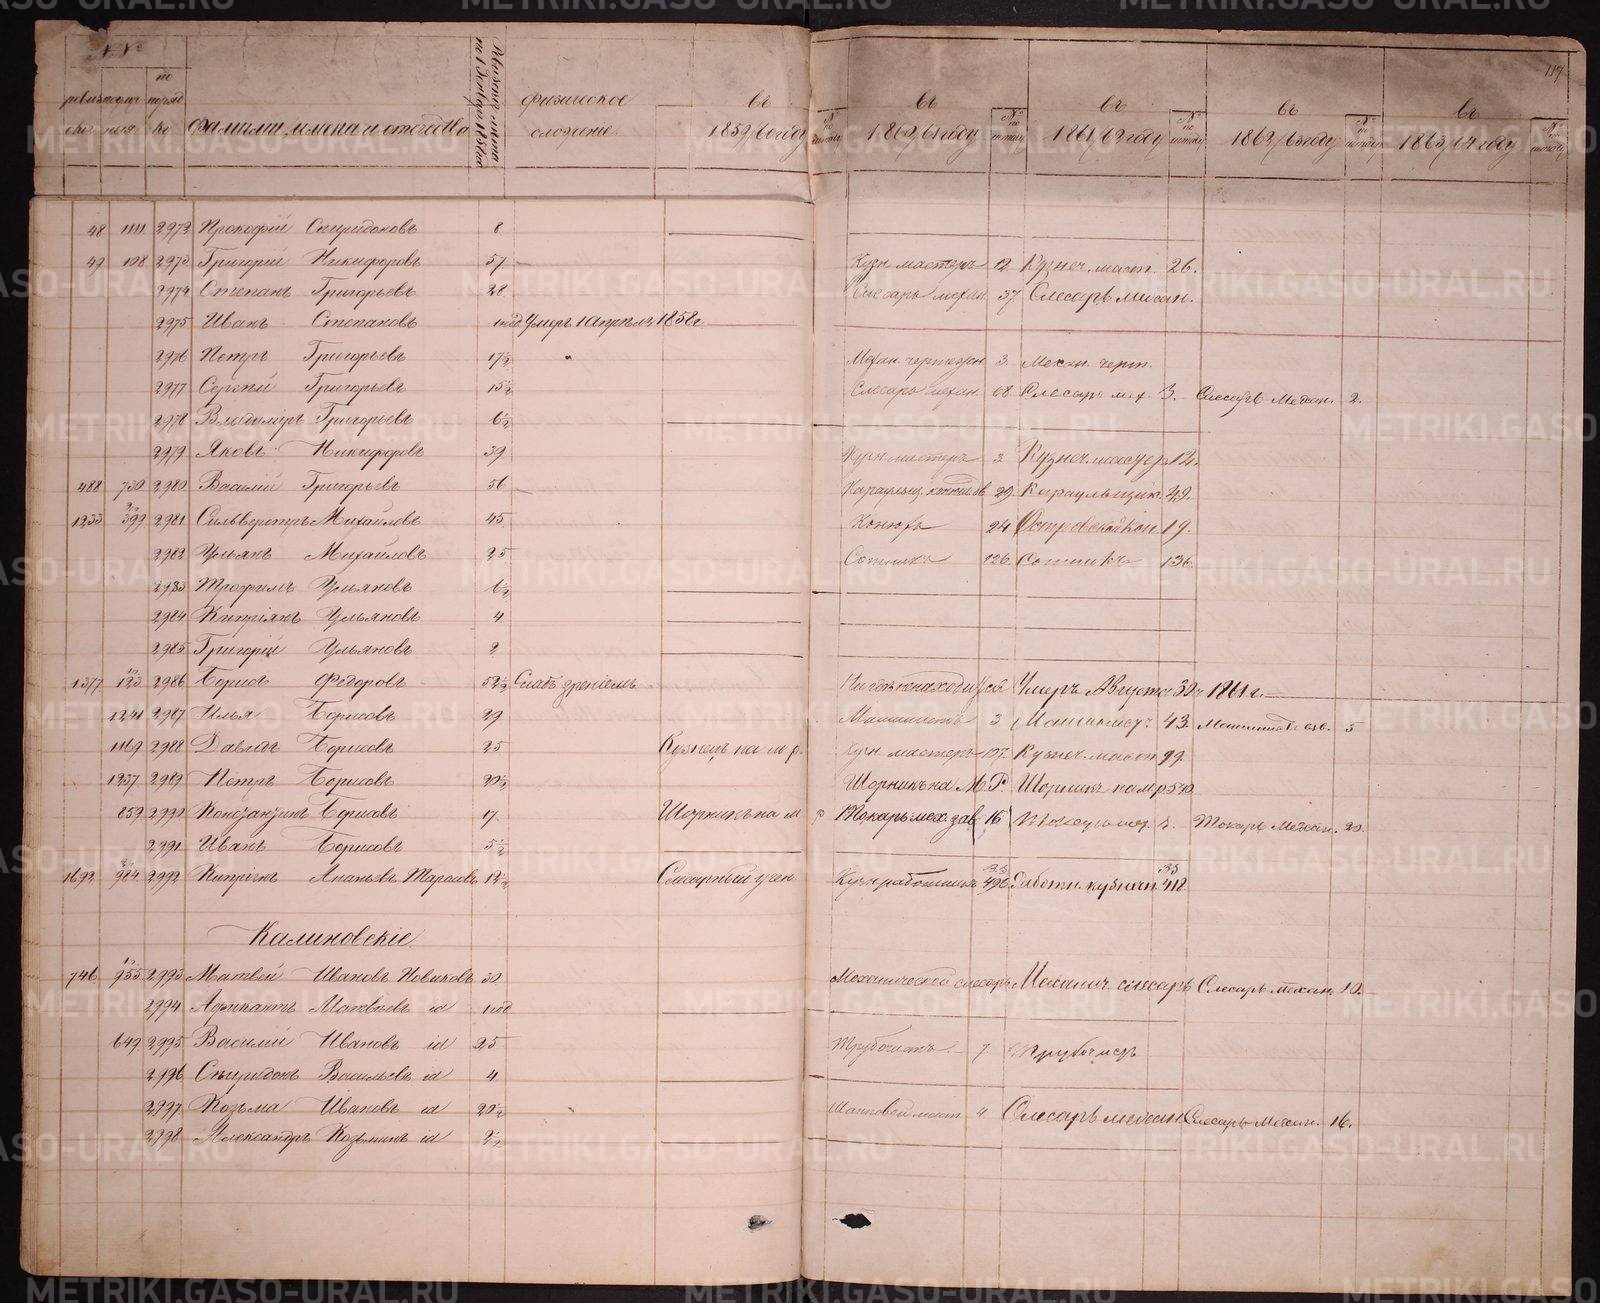 № №
ревизскія
по порядку
Фамиліи, имена и отчества
Ревизскія лѣта по 1 Января 1858 год
физическое сложеніе
въ 1859/60 году
№ по штату
въ 1860/61 году
№ по штату
въ 1861/62 году
№ по штату
въ 1862/63 году
№ по штату
въ 1863/64 году
№ по штату
48 1111 2972 Прокофій Спиридоновъ 8
49 108 2973 Григорій Никифоровъ 57 Кузн. мастеръ 12 Кузнеч. маст. 26.
2974 Степанъ Григорьевъ 28 Слесарь механ. 37 Слесарь механ.
2975 Иванъ Степановъ 1 год Умеръ 1 Апрѣля 1858 г.
2976 Петръ Григорьевъ 17½ " Механ. чертежн. 3. Механ. черт.
2977 Сергѣй Григорьевъ 15½ Слесарь механ. 68 Слесарь мех. 3. Слесарь Механ. 2.
2978 Владимиръ Григорьевъ 6½
2979 Яковъ Никифоровъ 39 Кузн. мастеръ 2 Кузнеч. мастер 12.
488 730 2980 Василій Григорьевъ 56 29. Караульщик. 49.
1233 399 2981 Сильверстръ Михайловъ 45 Конюхъ 24 Островской Кон. 19.
2982 Ульянъ Михайловъ 25 Сотникъ 126. Сотникъ 136.
2983 Трофимъ Ульяновъ 6½
2984 Кипріянъ Ульяновъ 4
2985 Григорій Ульяновъ 2
1377 123 2986 Борисъ Федоровъ 52½ Слабъ зреніемъ Нигдѣ не находится Умеръ Августа 30 ч 1861 г.
1241 2987 Илья Борисовъ 29 Машинистъ 3 Машинист 43. 5
1169 2988 Давыдъ Борисовъ 25 Кузнецъ на м. р. Кузн. мастеръ 107. Кузнеч. маст 99.
1237 2989 Петръ Борисовъ 20½ Шорникъ на М. Р. Шорникъ на м р. 570
859 2990 Константинъ Борисовъ 17 Шорникъ на м р Токарь мех. зав 16 Токарь мех. 4. Токарь Механ. 20.
2991 Иванъ Борисовъ 5½
1692 984 2992 Кипріянъ Ананьевъ Тарасовъ 12½ Слесарный учен. Кузн. работникъ 496 Работн. кузнечн. 418
Калиновскіе
746 955 2993 Матвей Ивановъ Новиковъ 30 Механической слесарь Механич. слесарь Слесарь механ. 10.
2994 Матвѣевъ id 1 год
649 2995 Василій Ивановъ id 25 Трубочистъ 7 Трубочистъ
2996 Спиридонъ Васильевъ id 4
2997 Козьма Ивановъ id 20½ 4 Слесарь механ. Слесарь Механ. 16.
2998 Александръ Козьминъ id 2½
METRIKI.GASO-URAL.RU